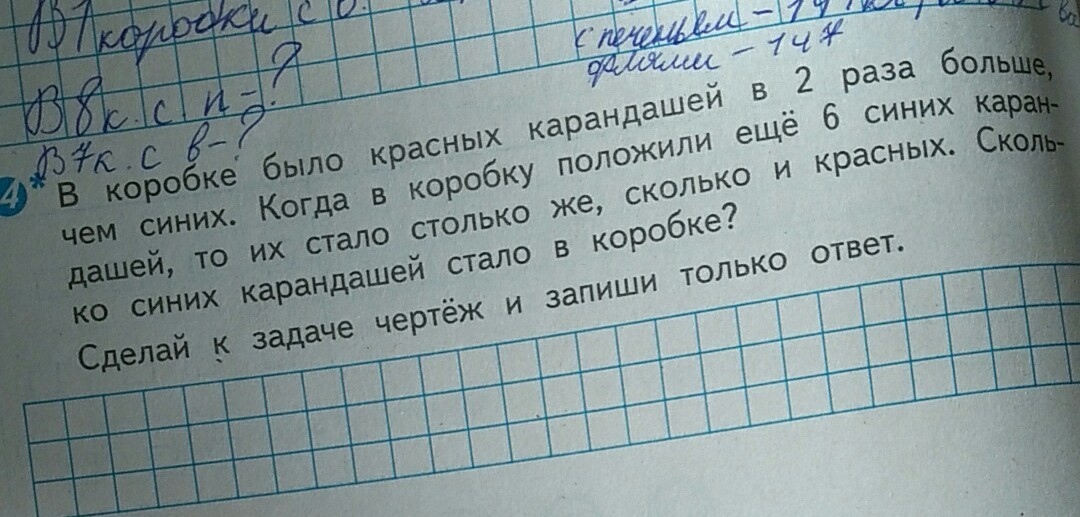 В 1 коробки с
с печеньем - 147
В 8 к. с п - ?
вафлями - 147
В 7 к. с в - ?
4* В коробке было красных карандашей в 2 раза больше,
чем синих. Когда в коробку положили ещё 6 синих каран-
дашей, то их стало столько же, сколько и красных. Сколь-
ко синих карандашей стало в коробке?
Сделай к задаче чертёж и запиши только ответ.